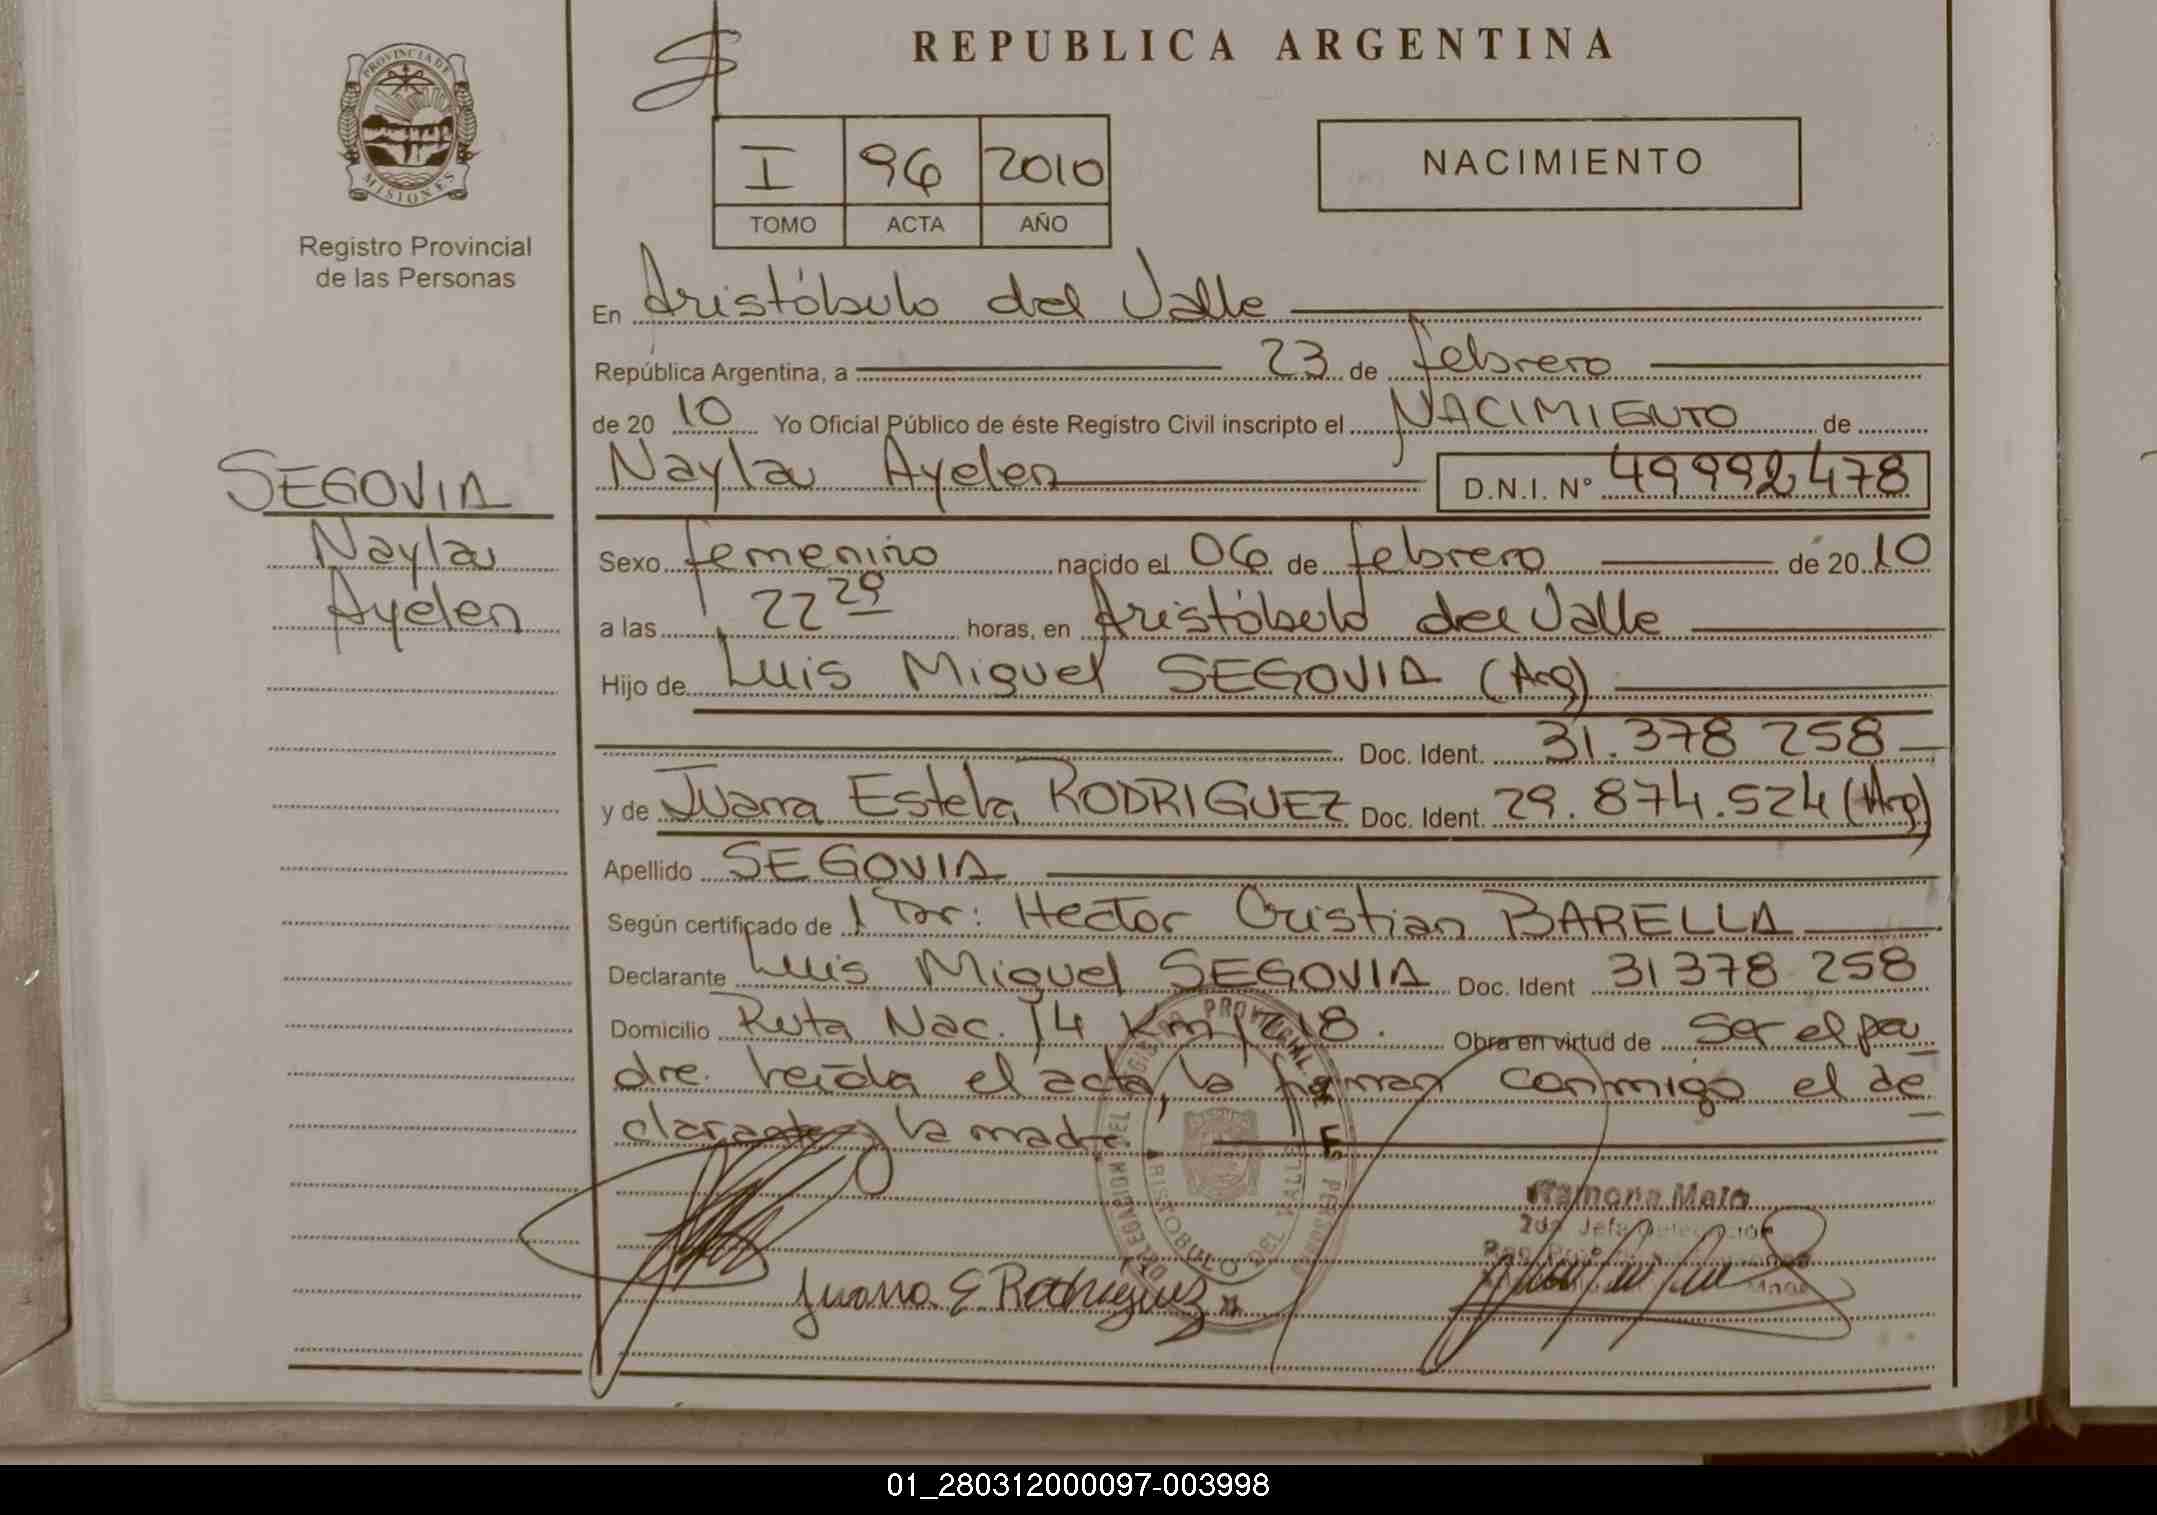 REPUBLICA ARGENTINA
PROVINCIA DE
MISIONES
Registro Provincial
de las Personas
I 96 2010
TOMO ACTA AÑO
NACIMIENTO
En Aristóbulo del Valle
República Argentina, a 23 de febrero
de 20 10 Yo Oficial Público de éste Registro Civil inscripto el NACIMIENTO de
Nayla Ayelen D.N.I. N° 49992478
SEGOVIA
Nayla
Ayelen
Sexo femenino nacido el 06 de febrero de 20 10
a las 22 20 horas, en Aristóbulo del Valle
Hijo de Luis Miguel SEGOVIA (Arg)
Doc. Ident. 31.378 258
y de Juana Estela RODRIGUEZ Doc. Ident. 29.874.524 (Arg)
Apellido SEGOVIA
Según certificado de Hector Cristian BARELLA
Declarante Luis Miguel SEGOVIA Doc. Ident 31378 258
Domicilio Ruta Nac. 14 Km 1218. Obra en virtud de Ser el pa
dre. leída el acta, la firman conmigo el de
clarante y la madre.
DELEGACION DEL REGISTRO PROVINCIAL DE
ARISTOBULO DEL VALLE
Ramona Melo
2da Jefa Delegación
Juana E Rodriguez
01_280312000097-003998